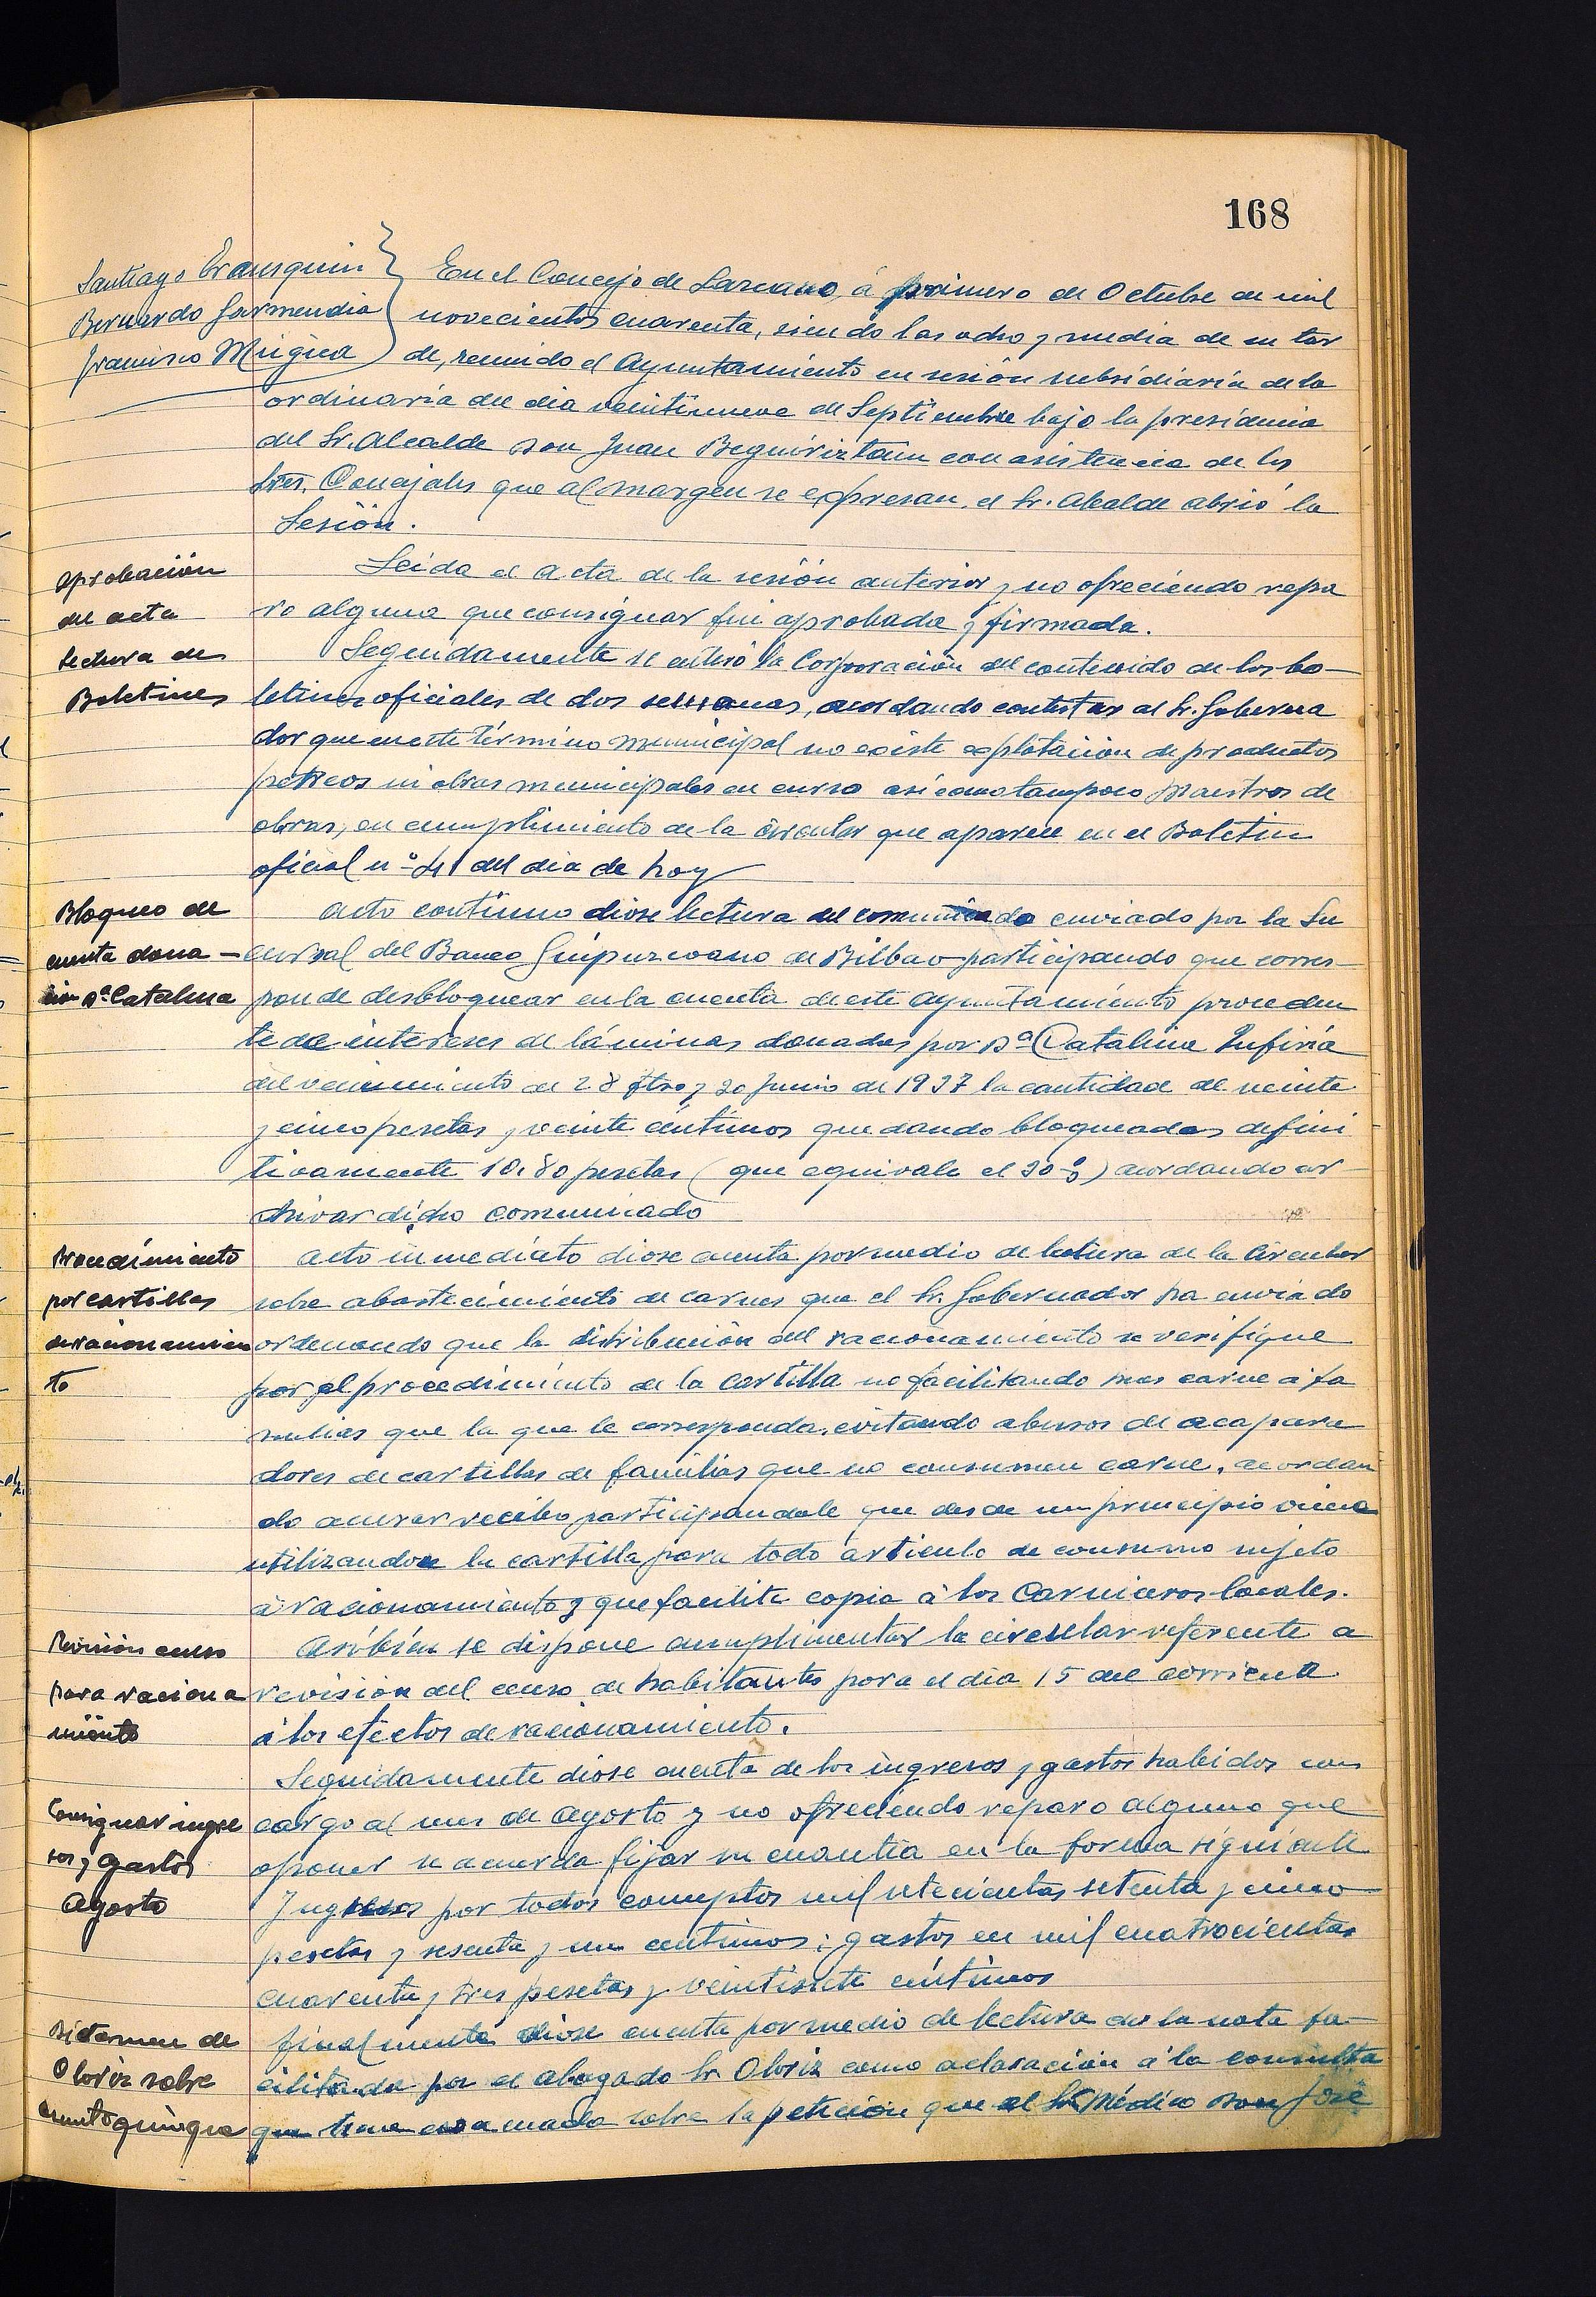 168
Santiago Erausquin
Bernardo Garmendia
Francisco Múgica
En el Concejo de Lazcano, á primero de Octubre de mil
novecientos cuarenta, siendo las ocho y media de su tar
de, reunido el Ayuntamiento en sesión subsidiaria de la
ordinaria del dia veintinueve de Septiembre bajo la presidencia
del Sr. Alcalde Don Juan Beguiriztain con asistencia de los
Sres. Concejales que al margen se expresan, el Sr. Alcalde abrió la
Sesión.
Aprobación
del acta
Leida el acta de la sesión anterior y no ofreciendo repa
ro alguno que consignar fué aprobada y firmada.
Lectura de
Boletines
Seguidamente se enteró la Corporación del contenido de los bo-
letines oficiales de dos semanas, acordando contestar al Sr. Goberna
dor que en este término municipal no existe explotación de productos
petreos ni obras municipales en curso asi como tampoco Maestros de
obras, en cumplimiento de la circular que aparece en el Boletin
oficial nº 41 del dia de hoy
Bloqueo de
cuenta dona-
ción Dª Catalina
Acto continuo diose lectura del comunicado enviado por la Su
cursal del Banco Guipuzcoano de Bilbao participando que corres-
ponde desbloquear en la cuenta de este Ayuntamiento proceden
te de intereses de láminas donadas por Dª Catalina
del vencimiento de 28 y 30 Junio de 1937 la cantidad de veinte
y cinco pesetas y veinte céntimos quedando bloqueadas defini
tivamente 10,80 pesetas (que equivale el 30 %) acordando ar
chivar dicho comunicado
Procedimiento
por cartillas
de racionamien
to
Acto inmediato diose cuenta por medio de lectura de la Circular
sobre abastecimiento de carnes que el Sr. Gobernador ha enviado
ordenando que la distribución del racionamiento se verifique
por el procedimiento de la cartilla no facilitando mas carne á fa
milias que la que le corresponda, evitando abusos de acapara
dores de cartillas de familias que no consumen carne, acordan
do acusar recibo participandole que desde un principio viene
utilizandose la cartilla para todo articulo de consumo sujeto
á racionamiento y que facilite copia á los Carniceros locales.
Revisión censo
para raciona
miento
Asimbién se dispone cumplimentar la circular referente a
revisión del censo de habitantes para el dia 15 del corriente
á los efectos de racionamiento.
Consignar ingre
sos y gastos
Agosto
Seguidamente diose cuenta de los ingresos y gastos habidos con
cargo al mes de Agosto y no ofreciendo reparo alguno que
oponer se acuerda fijar su cuantia en la forma siguiente
Ingresos por todos conceptos mil setecientas setenta y cinco
pesetas y sesenta y un centimos; gastos en mil cuatrocientas
cuarenta y tres pesetas y veintisiete céntimos
Dictamen de
Oloriz sobre
asunto quinque
Finalmente diose cuenta por medio de lectura de la nota fa-
cilitada por el abogado Sr. Oloriz como aclaración á la consulta
que tiene evacuada sobre la petición que el Sr. Médico Don José